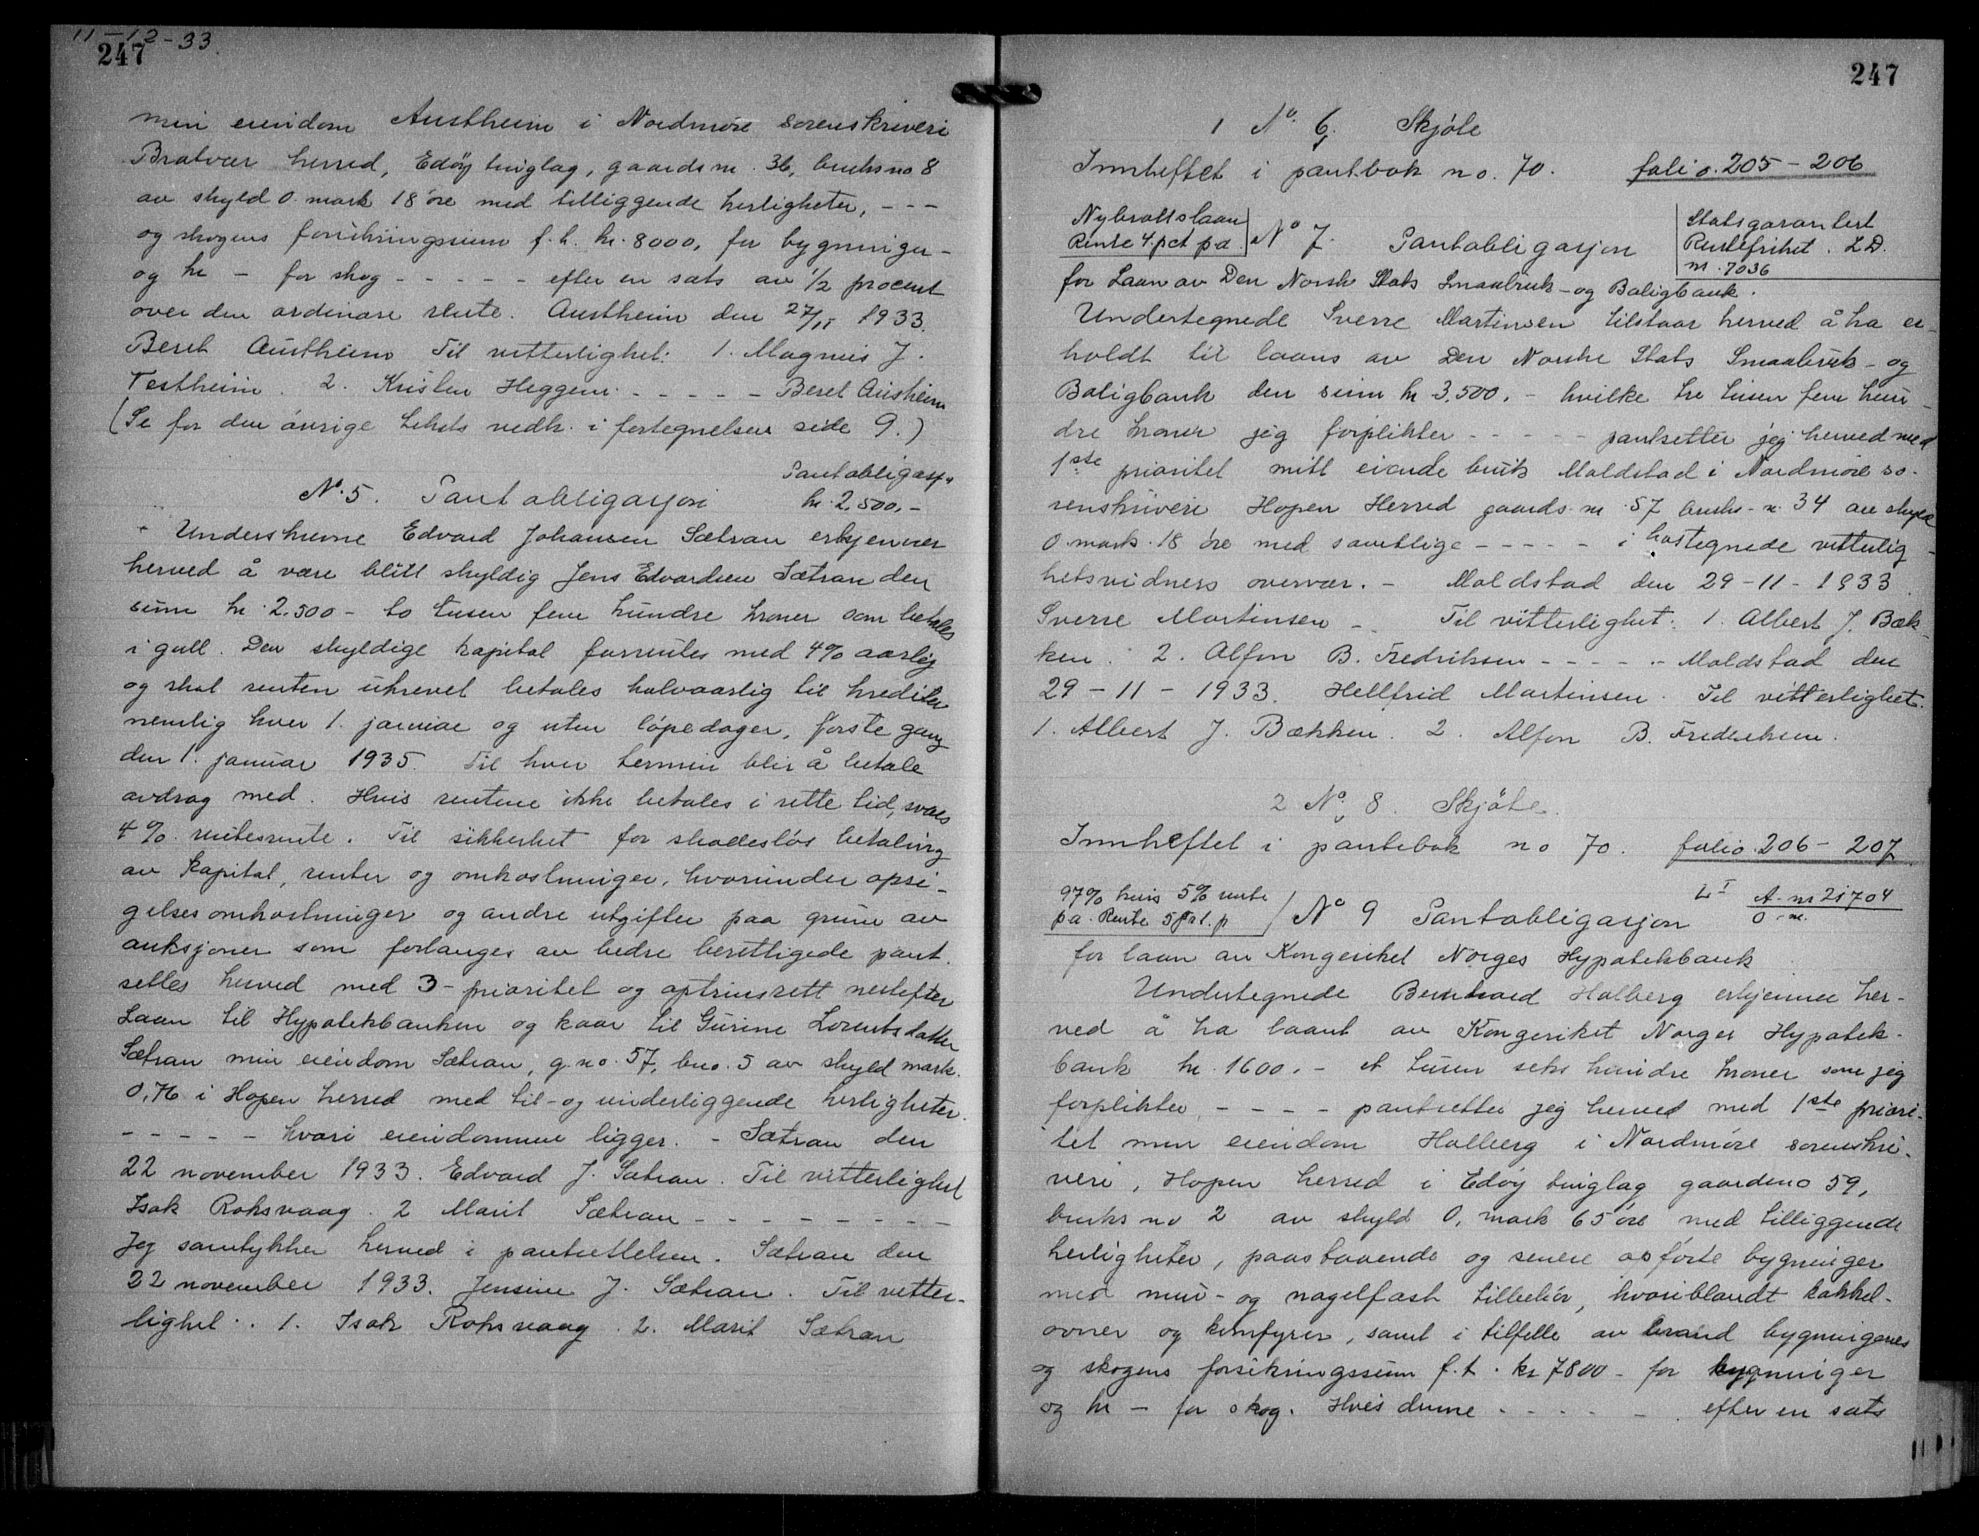 11-12-33.
247
min eiendom Austheim i Nordmøre sorenskriveri
Bratvær herred, Edøy tinglag, gaardsnr. 36, bruksno 8
av skyld 0 mark 18 øre med tilliggende herligheter, - - -
og skogens forsikringssum f.t. kr. 8000, for bygninger -
og kr - for skog - - - - - efter en sats av 1/2 procent
over den ordinære rente. Austheim den 27/11 1933.
Beret Austheim Til vitterlighet: 1. Magnus J.
Testheim. 2. Kristen Heggem. - - - - - Beret Austheim
(Se for den øvrige teksts vedk. i fortegnelsen side 9.)
Pantobligasj.
No. 5. Pantobligasjon kr. 2.500,-
Underskrevne Edvard Johansen Sætran erkjenner
herved å være blitt skyldig Jens Edvardsen Sætran den
sum kr. 2.500 - to tusen fem hundre kroner som betales
i gull. Den skyldige kapital forrentes med 4% aarlig
og skal renten ukrevet betales halvaarlig til kreditor
nemlig hver 1. januar og uten løpedager, første gang
den 1. januar 1935. Til hver termin blir å betale
avdrag med. Hvis rentene ikke betales i rette tid, svares
4% rentesrente. Til sikkerhet for skadesløs betaling
av kapital, renter og omkostninger, hvorunder opsi-
gelsesomkostninger og andre utgifter paa grunn av
auksjoner som forlanges av bedre berettigede pant.
settes herved med 3-prioritet og optrinsrett nestefter
Laan til Hypotekbanken og kaar til Gurine Lorentsdatter
Sætran min eiendom Sætran, g.no. 57, bno. 5 av skyld mark.
0,76 i Hopen herred med til- og underliggende herligheter.
- - - - - hvori eiendommene ligger. - Sætran den
22 november 1933. Edvard J. Sætran. Til vitterlighet
Isak Roksvaag. 2 Marit Sætran - - - - - - - -
Jeg samtykker herved i pantsettelsen. Sætran den
22 november 1933. Jensine J. Sætran. Til vitter-
lighet.. 1. Isak Roksvaag. 2. Marit Sætran
247
1 No. 6. Skjøte
Innheftet i pantbok no. 70. folio. 205-206
Nybrottslaan
Rente 4 pct p a
No 7. Pantobligasjon
Statsgarantert
Rentefrihet. L.D.
nr. 7036
for Laan av Den Norske Stats Smaabruk- og Boligbank.
Undertegnede Sverre Martinsen tilstaar herved å ha er-
holdt til laans av Den Norske Stats Smaabruk- og
Boligbank den sum kr 3.500,- hvilke tre tusen fem hun-
dre kroner jeg forplikter - - - - - pantsetter jeg herved med
1ste prioritet mitt eiende bruk Moldstad i Nordmøre so-
renskriveri Hopen Herred gaards nr. 57 bruks-nr. 34 av skyld
0 mark. 18 øre med samtlige - - - - - i hostegnede vitterlig-
hetsvidners overvær. - Moldstad den 29-11-1933.
Sverre Martinsen - Til vitterlighet: 1. Albert J. Bæk-
ken. 2. Alfon B. Fredriksen - - - - - Moldstad den
29-11-1933. Hellfrid Martinsen. Til vitterlighet.
1. Albert J. Bækken. 2. Alfon B. Fredriksen.
2 No. 8. Skjøte.
Innheftet i pantebok no 70. folio. 206-207.
97% kurs 5% rente
p a. Rente 5 pct. p
No 9 Pantobligasjon
L I A-nr 21704
0-nr.
for laan av Kongeriket Norges Hypotekbank
Undertegnede Bernhard Holberg erkjenner her-
ved å ha laant av Kongeriket Norges Hypotek-
bank kr. 1600.- et tusen seks hundre kroner som jeg
forplikter - - - - pantsetter jeg herved med 1ste priori-
tet min eiendom Holberg i Nordmøre sorenskri-
veri, Hopen herred i Edøy tinglag gaardsno 59,
bruks no 2 av skyld 0, mark 65 øre med tilliggende
herligheter, paastaaende og senere opførte bygninger
med mur- og nagelfast tilbehør, hvoriblandt kakkel-
ovner og komfyrer, samt i tilfelle av brand bygningenes
og skogens forsikringssum f.t. kr 7800 - for bygninger
og kr - for skog. Hvis denne - - - - - efter en sats